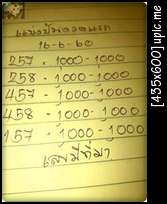 16-6-60
257 - 1000 - 1000
258 - 1000 - 1000
457 - 1000 - 1000
458 - 1000 - 1000
157 - 1000 - 1000
เลขมีที่มา
[435x600] upic.me